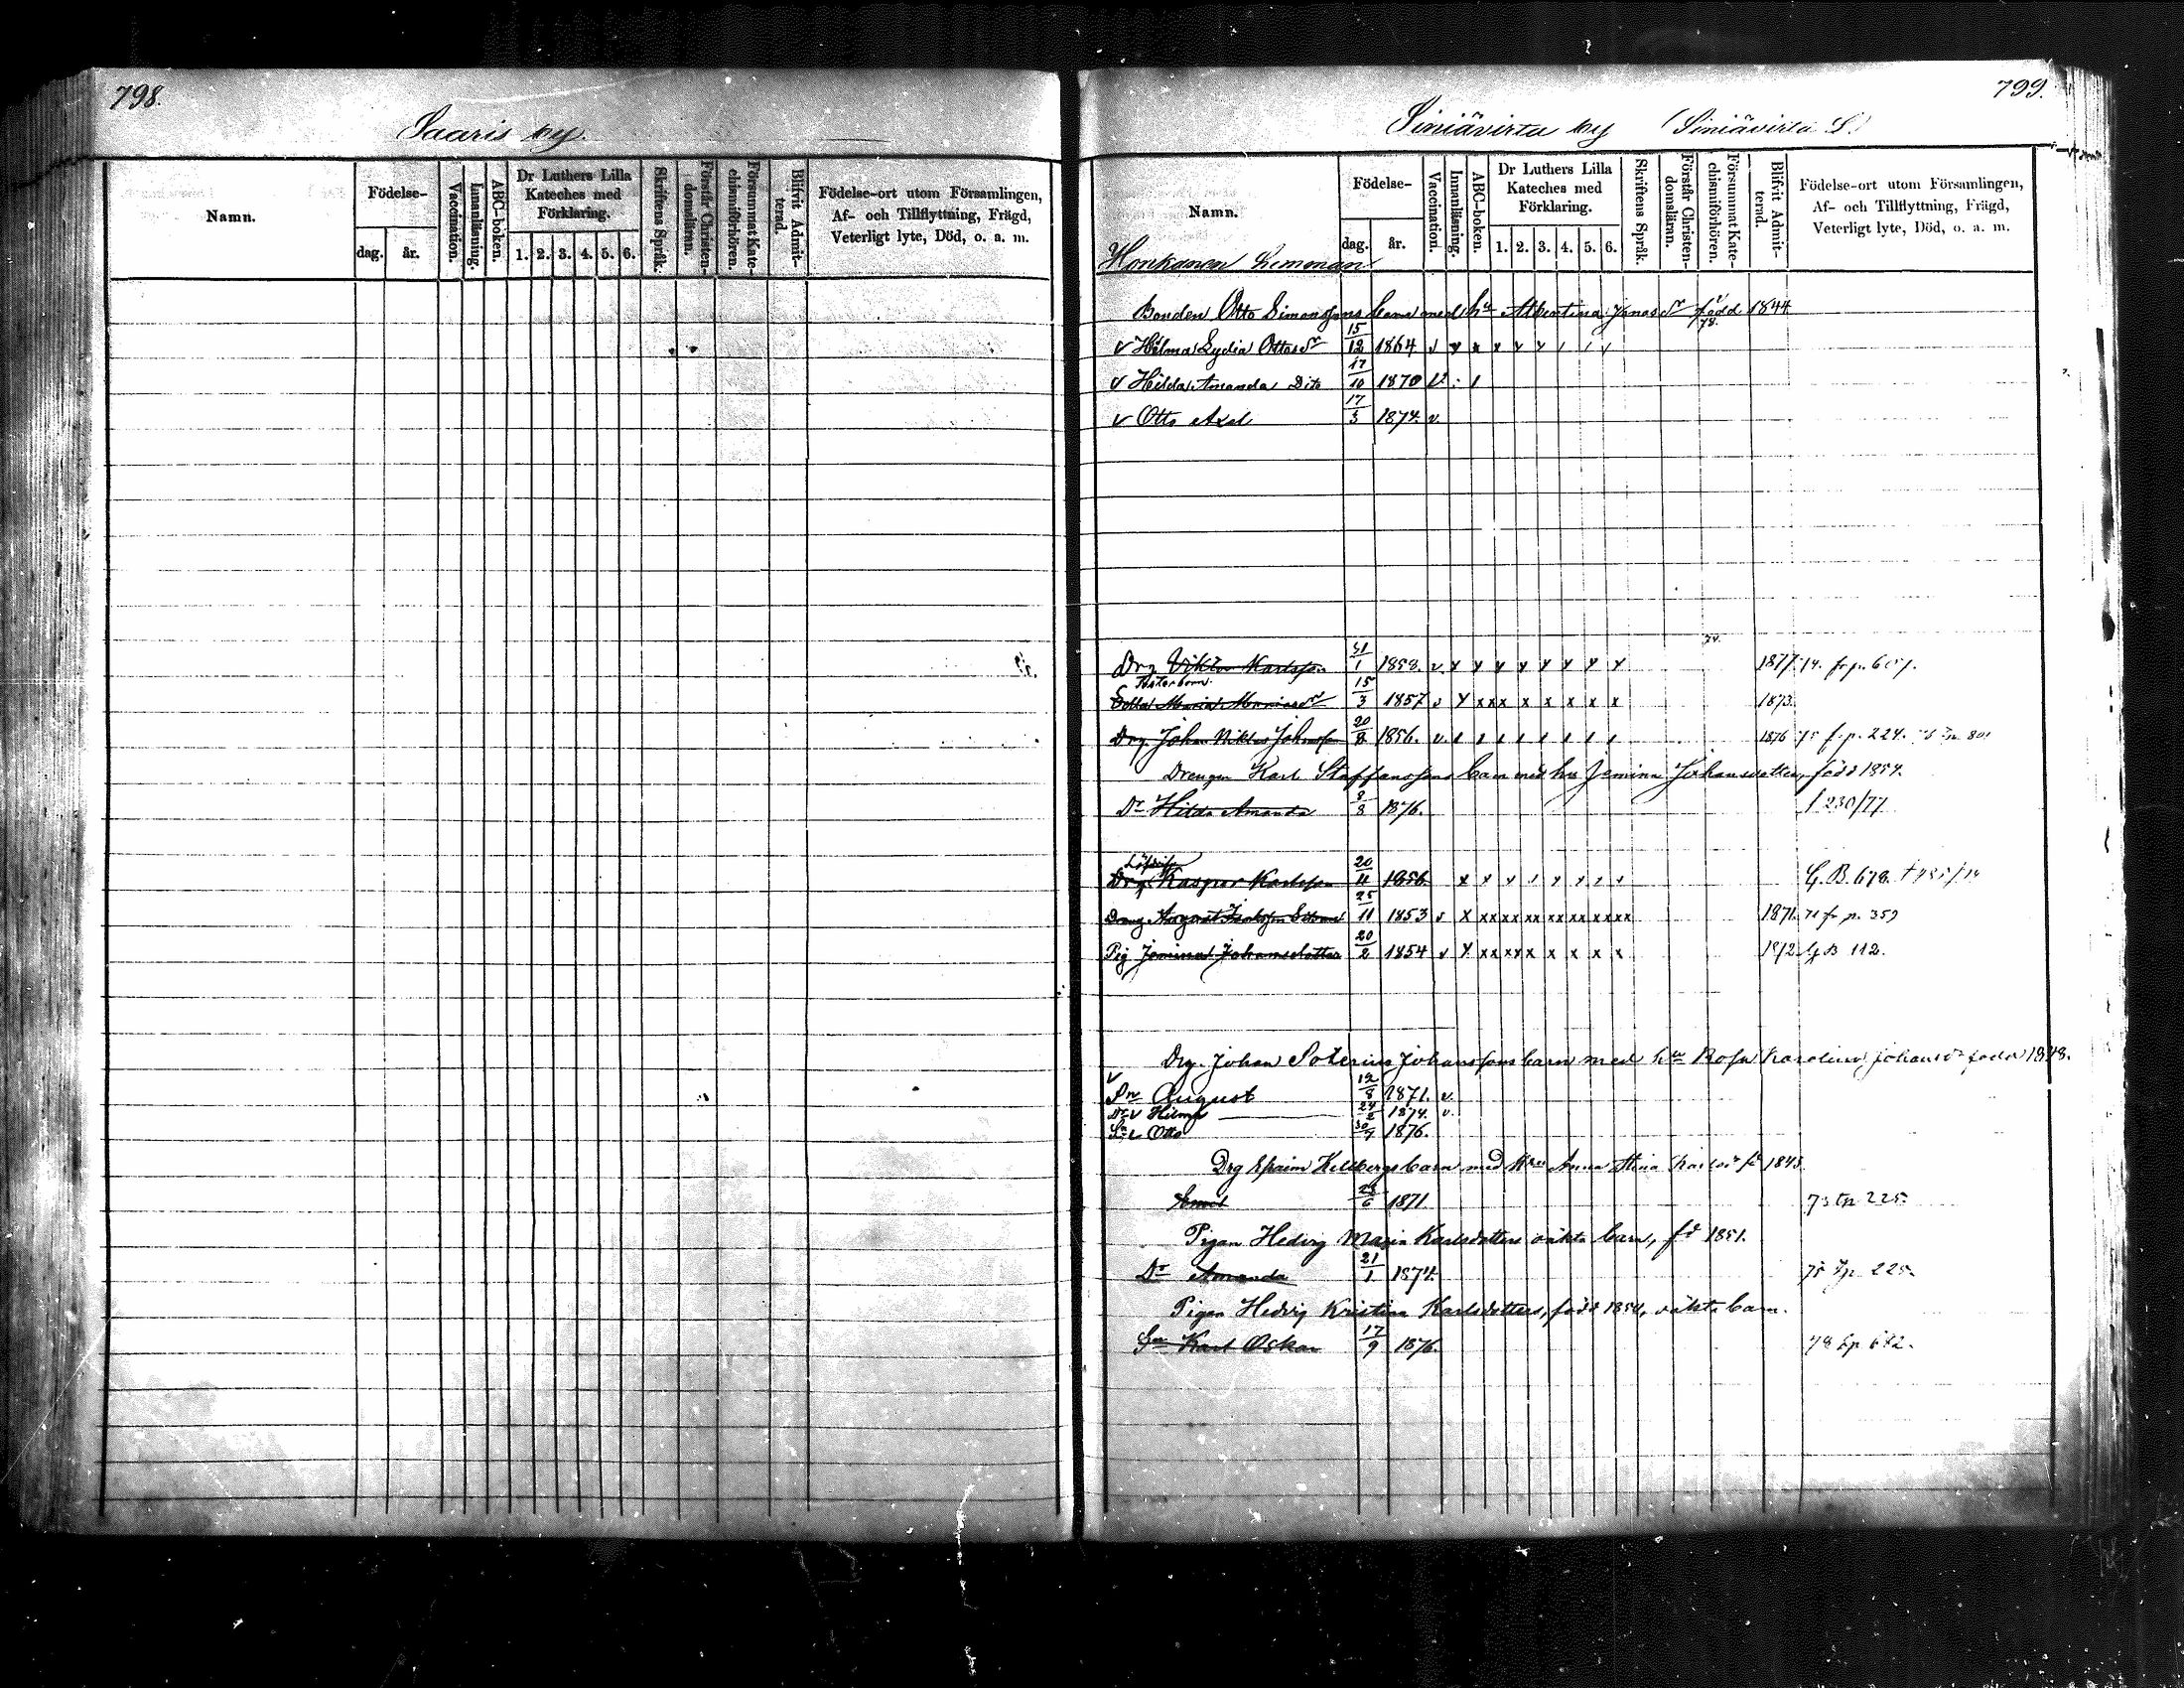 798.
Saaris by.
Namn.
Födelse-
dag. år.
Vaccination.
Innanläsning.
ABC-boken.
Dr Luthers Lilla
Kateches med
Förklaring.
1. 2. 3. 4. 5. 6.
Skriftens Språk.
Förstår Christen-
domsläran.
Försummat Kate-
chismiförhören.
Blifvit Admit-
terad.
Födelse-ort utom Församlingen,
Af- och Tillflyttning, Frägd,
Veterligt lyte, Död, o. a. m.
799.
Siniävirta by (Siniävirta S.)
Namn.
Födelse-
dag. år.
Vaccination.
Innanläsning.
ABC-boken.
Dr Luthers Lilla
Kateches med
Förklaring.
1. 2. 3. 4. 5. 6.
Skriftens Språk.
Förstår Christen-
domsläran.
Försummat Kate-
chismiförhören.
Blifvit Admit-
terad.
Födelse-ort utom Församlingen,
Af- och Tillflyttning, Frägd,
Veterligt lyte, Död, o. a. m.
Honkanen
Bonden Otto Simonssons barn med hu Albertina Jonas dr född 1844
v Hilma Lydia Ottos dr 15/12 1864 v x x x v v
v Hilda Amanda Dito 17/10 1870 v
v Otto Axel 17/3 1874. v.
Drg Viktor Karlsson 31/1 1858. v x x x x x x x x 1877. 74. fr p. 601.
Maria 15/3 1857 v x xxx x x x x x 1873.
Drg. Johan Niklas Johansson 20/8 1856. v. 1876 75 fr p. 224.
Drengen Karl Staffanssons barn med hu Jemina Johansdotter, född 1854.
Dr Hilda Amanda 8/8 1876. f 230/77
Drg Kaspar Karlsson 20/11 1856 G. B. 678.
Dreng August 25/11 1853 v x xx xx xx xx xx xx xx 1871. 71 fr p. 359
Pig Jemina Johansdotter 20/2 1854 v x xx xx x x x x x 1872 G B 112.
Drg. Johan Soterius Johanssons barn med hu Rosa Karolina Johansdr född 1848.
v
Sn August 12/8 1871. v.
Dr v Hilma 24/2 1874. v.
Sn v Otto 30/7 1876.
Drg Efraim Kellbergs barn med Hru Anna Stina Karlsdr 1845
23/6 1871 73 tp 225.
Pigan Hedvig Maria Karlsdotters oäkta barn, fd 1851.
Dr Amanda 21/1 1874. 75 tp 225.
Pigan Hedvig Kristina Karlsdotters, född 1854, oäkta barn.
Sn Karl Oskar 17/9 1876. 78 tp 682.